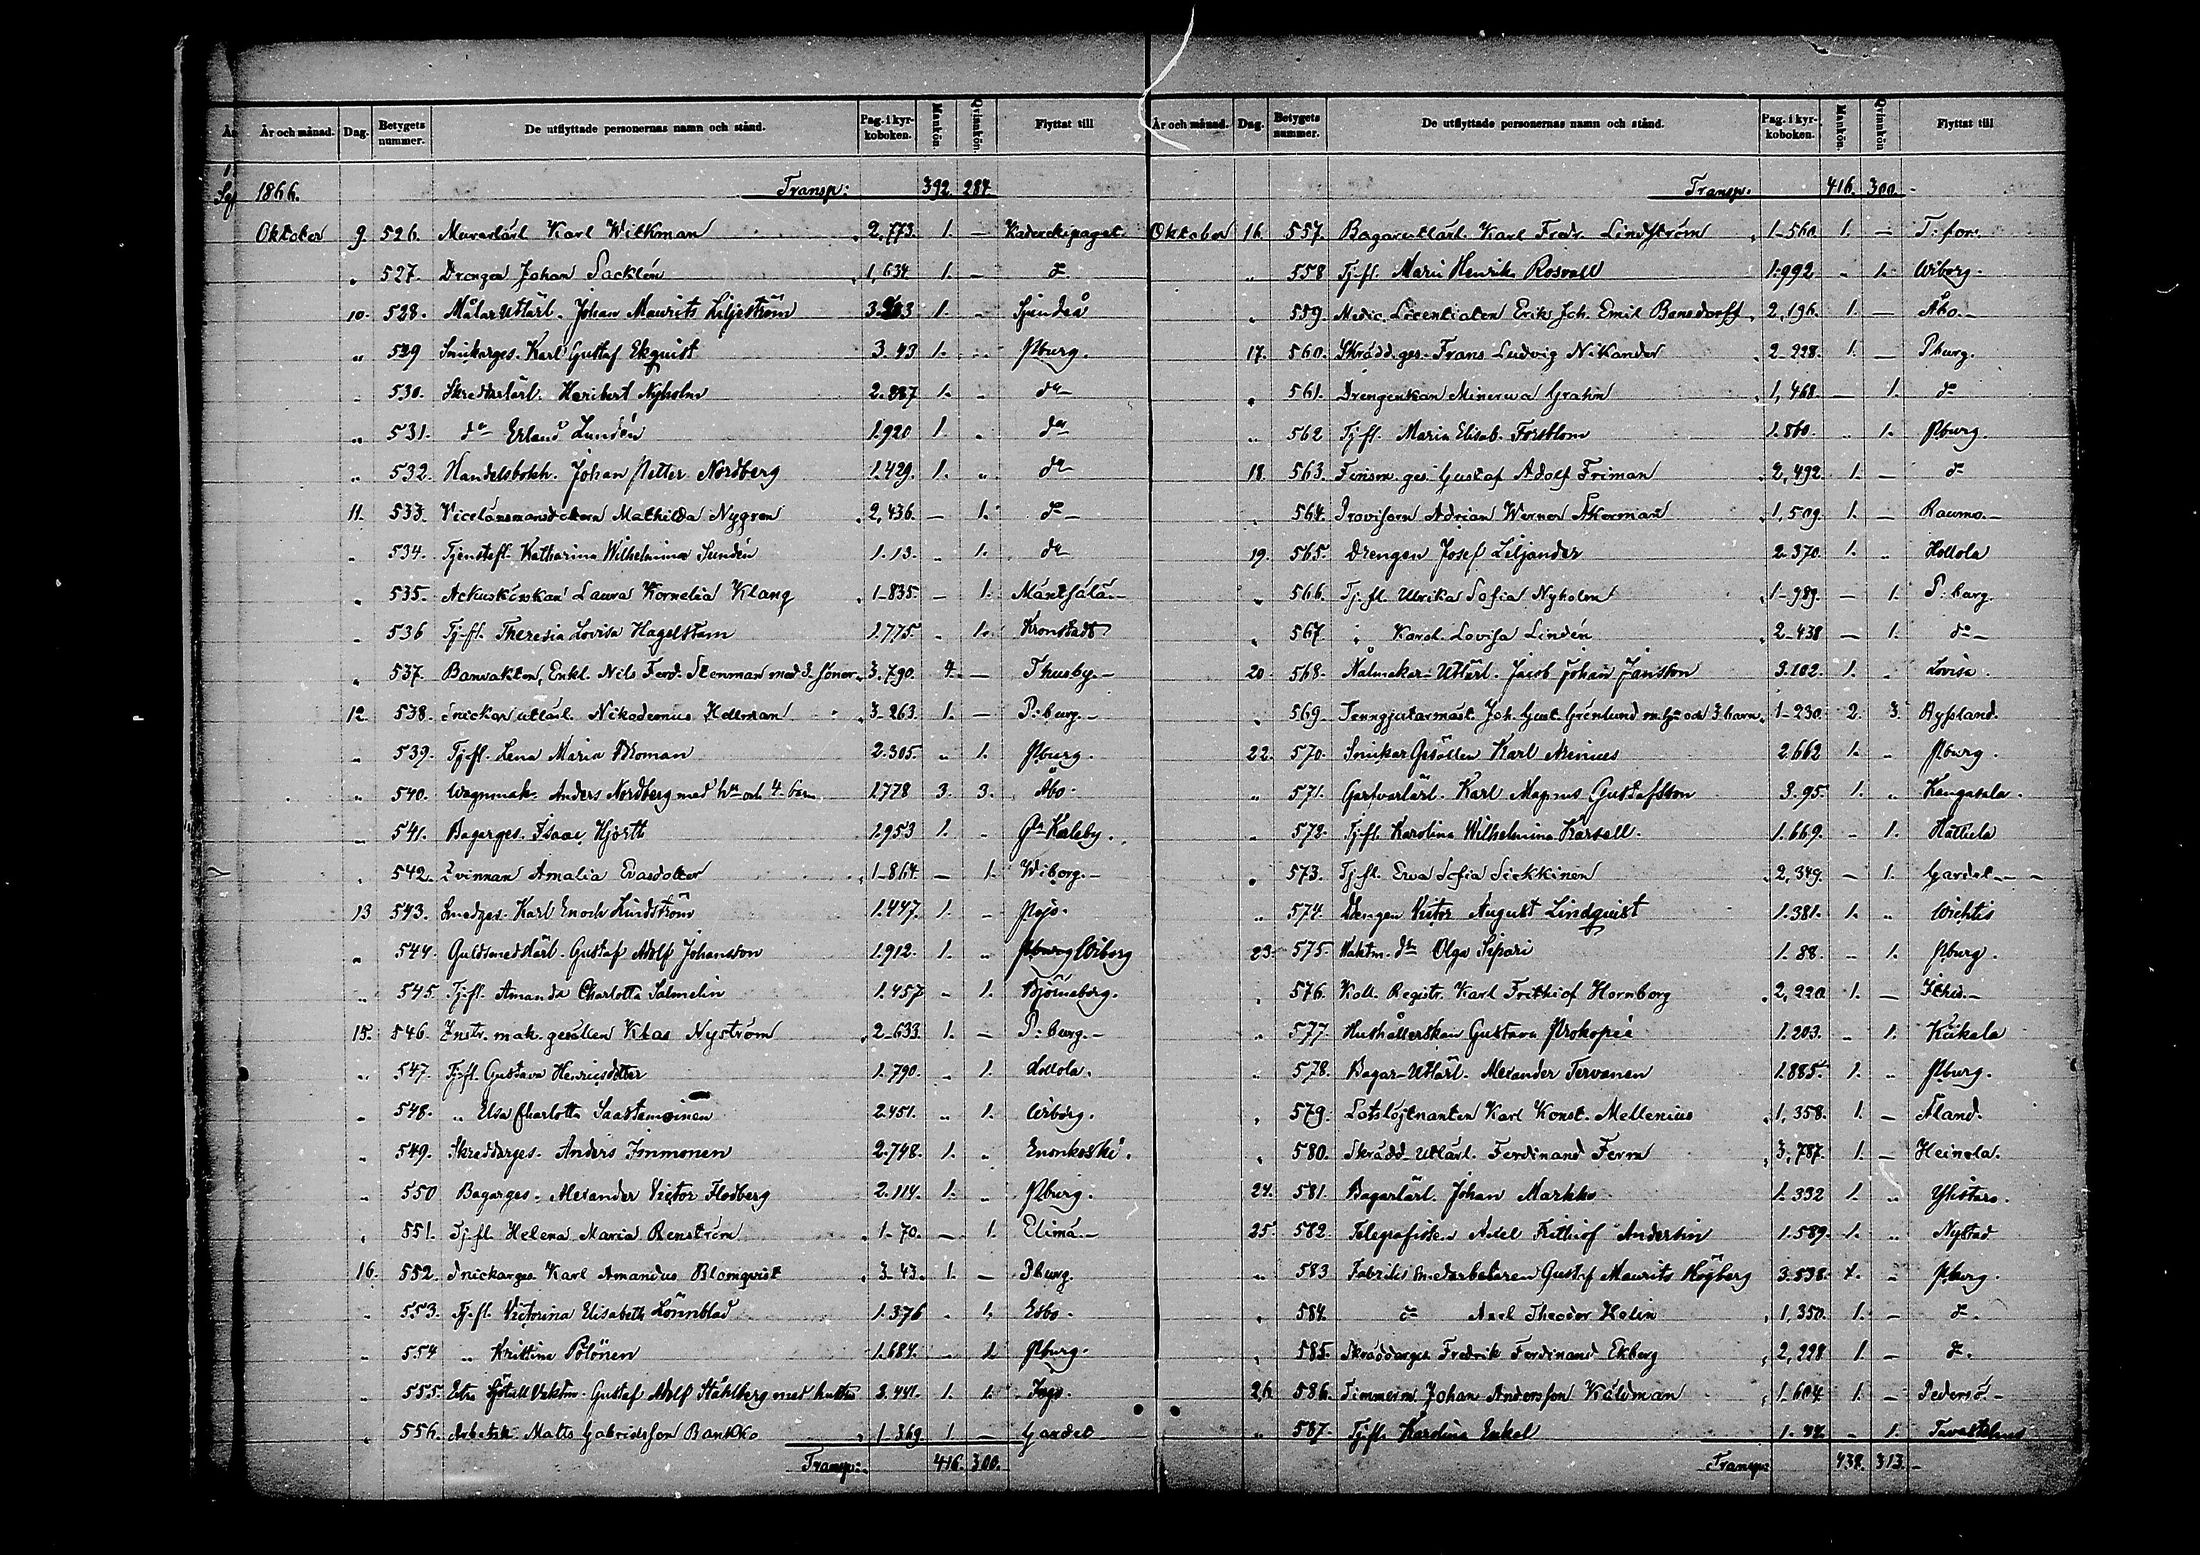 År och månad. Dag. Betygets nummer. De utflyttade personernas namn och stånd. Pag. i kyrkoboken. Mankön. Qvinnkön. Flyttat till
1866. Transp: 392. 284.
Oktober 9. 526. Murarlärl Karl Wilkman 2,773. 1. — Kaderckipaget
„ 527. Drengen Johan Sacklén 1,634 1. — do
10. 528. Målar Utlärl. Johan Maurits Liljeström 1. „ Sjundeå
„ 529 Snickarges. Karl Gustaf Ekquist 3.43 1. „ Pburg.
„ 530. Skreddarlärl. Heribert Nyholm 2.887 1. „ do
„ 531. do Erland Lundén 1.920 1. „ do
„ 532. Handelsbokh. Johan Petter Nordberg 1.429. 1. „ do
11. 533. Vicelänsmansdottern Mathilda Nygren 2,436. — 1. do —
„ 534. Tjenstefl. Katharina Wilhelmina Sundén 1.13. „ 1. do
„ 535. Ackuskörskan Laura Kornelia Klang 1-835. — 1. Mäntsälä.—
„ 536 Tj.fl. Theresia Lovisa Hagelstam 1.775. „ 1. Kronstadt
„ 537. Banvakten, Enkl. Nils Ferd. Stenman med 3 söner 3.790. 4. — Thusby.—
12. 538. Snickar utlärl. Nikodemus Hallman 3-263. 1. — P:burg.—
„ 539. Tj.fl. Lena Maria Broman 2.305. „ 1. Pburg.
„ 540. Wagnmak. Anders Nordberg med hu och 4 barn 1.778 3. 3. Åbo.
„ 541. Bagarges. Isaac Hjorth 1.953 1. „ Gla Karleby.
„ 542. Qvinnan Amalia Evasdotter 1-864. — 1. Wiborg.—
13 543. Smedges. Karl Enoch Lindström 1.447. 1. „ Pojo.
„ 544. Guldsmedslärl. Gustaf Adolf Johansson 1.912. 1. „ Pburg Wiborg
„ 545. Tj.fl. Amanda Charlotta Salmelin 1.457 „ 1. Björneborg.
15. 546. Instr. mak. gesällen Klas Nyström 2-633. 1. — P:burg.—
„ 547. Tj.fl. Gustava Henricsdotter 1.790. „ 1. Hollola.
„ 548. „ Ulla Charlotta Saastamoinen 2.451. „ 1. Wiborg.
„ 549. Skreddarges. Anders Immonen 2.748. 1. „ Enonkoski.
„ 550 Bagarges. Alexander Victor Flodberg 2.114. 1. „ Pburg.
„ 551. Tj.fl. Helena Maria Renström 1-70. — 1. Elimä.—
16. 552. Snickarges Karl Amandus Blomqvist 3-43. 1. — Pburg.
„ 553. Tj.fl. Victorina Elisabeth Lönnblad 1.376 „ 1. Esbo.
„ 554 „ Kristina Pölönen 1.684. „ 1. Pburg.
„ 555. Extra Vaktm. Gustaf Adolf Ståhlberg med hustru 3.441. 1. 1. Ingo.
„ 556. Arbetsk. Matts Gabrielsson Bankko 1.369 1. — Gardet
Transp: 416. 300.
År och månad. Dag. Betygets nummer. De utflyttade personernas namn och stånd. Pag. i kyrkoboken. Mankön. Qvinnkön Flyttat till
Transp: 416. 300.
Oktober 16. 557. Bagareutlärl. Karl Fredr. Lindström 1-560. 1. — T:fors.
„ 558 Tj.fl. Maria Henrika Rosvall 1.992 „ 1. Wiborg.
„ 559. Medic. Licentiaten Erik Joh. Emil Bonsdorff 2,196. 1. — Åbo.—
17. 560. Skrädd.ges. Frans Ludvig Nikander 2-228. 1. — Pburg.
„ 561. Drengenkan Minerva Grahn 1,468. — 1. do
„ 562 Tj.fl. Maria Elisab. Forsblom 1.860. „ 1. Pburg.
18. 563. Timm. ges. Gustaf Adolf Friman 2,492. 1. — do
„ 564. Provisorn Adrian Werner Åkerman 1,509. 1. — Raumo.—
19. 565. Drengen Josef Liljander 2.370. 1. „ Hollola
„ 566. Tj.fl. Ulrika Sofia Nyholm 1-989. — 1. P:burg.
„ 567 „ Karol. Lovisa Lindén 2-438 — 1. do —
20. 568. Nålmakar-Utlärl. Jacob Johan Jansson 3.102. 1. „ Lovisa.
„ 569. Tenngjutarmäst. Joh. Gust. Grönlund m. hu och 3 barn 1-230. 2. 3. Ryssland.
22. 570. Snickar Gesällen Karl Arenius 2.662 1. „ Pburg.
„ 571. Garfvarlärl. Karl Magnus Gustafsson 3.95. 1. „ Kangasala.
„ 572. Tj.fl. Karolina Wilhelmina Karsell. 1.669. „ 1. Hattula
„ 573. Tj.fl. Eva Sofia Siekkinen 2,349. — 1. Gardet —
„ 574. Drengen Victor August Lindquist 1.381. 1. „ Wichtis
23. 575. Vaktm. dtr Olga Sipari 1.88. „ 1. Pburg.
„ 576. Koll. Registr. Karl Frithiof Hornborg 2,220 1. —
„ 577. Hushållerskan Gustava Prokopeé 1.203. „ 1. Kiikala
„ 578. Bagar-Utlärl. Alexander Tervonen 1.885. 1. „ Pburg.
„ 579. Lotslöjtnanten Karl Konst. Mellenius 1,358. 1. — Åland.
„ 580. Skrädd. Utlärl. Ferdinand Ferm 3,787. 1. — Heinola.
24. 581. Bagarlärl. Johan Markko 1.332 1. „ Ylistaro.
25. 582. Telegrafisten Axel Frithiof Andersin 1.589. 1. „ Nystad
„ 583 Fabriks medarbetaren Gustaf Maurits Högberg 3.538. 1. „ Pburg.
„ 584. do Axel Theodor Helin 1,350. 1. — do.
„ 585. Skräddarges. Fredrik Ferdinand Ekberg 2,228 1. — do.
26. 586. Timmerm. Johan Andersson Käldman 1-604 1. — Pedersö.—
„ 587. Tj.fl. Karolina Enkel „ 1. Tavastehus
Transp: 438. 313.